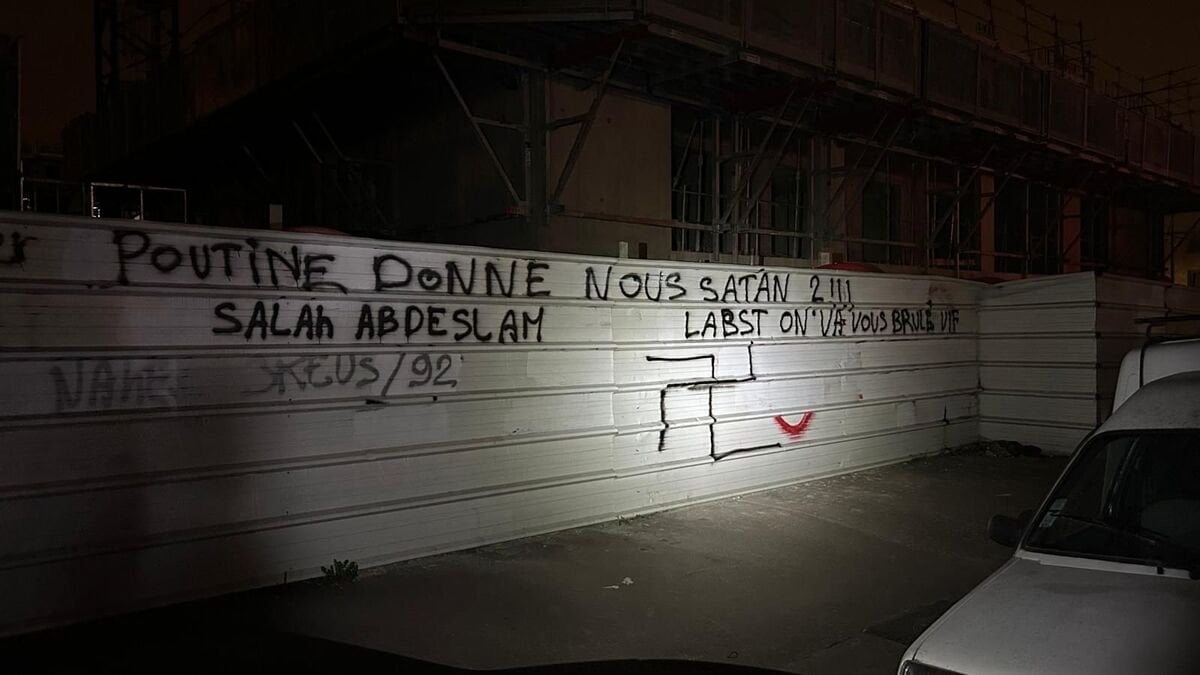 POUTINE DONNE NOUS SATAN 2!!!
SALAH ABDESLAM
LABST ON VA VOUS BRULÉ VIF
/92